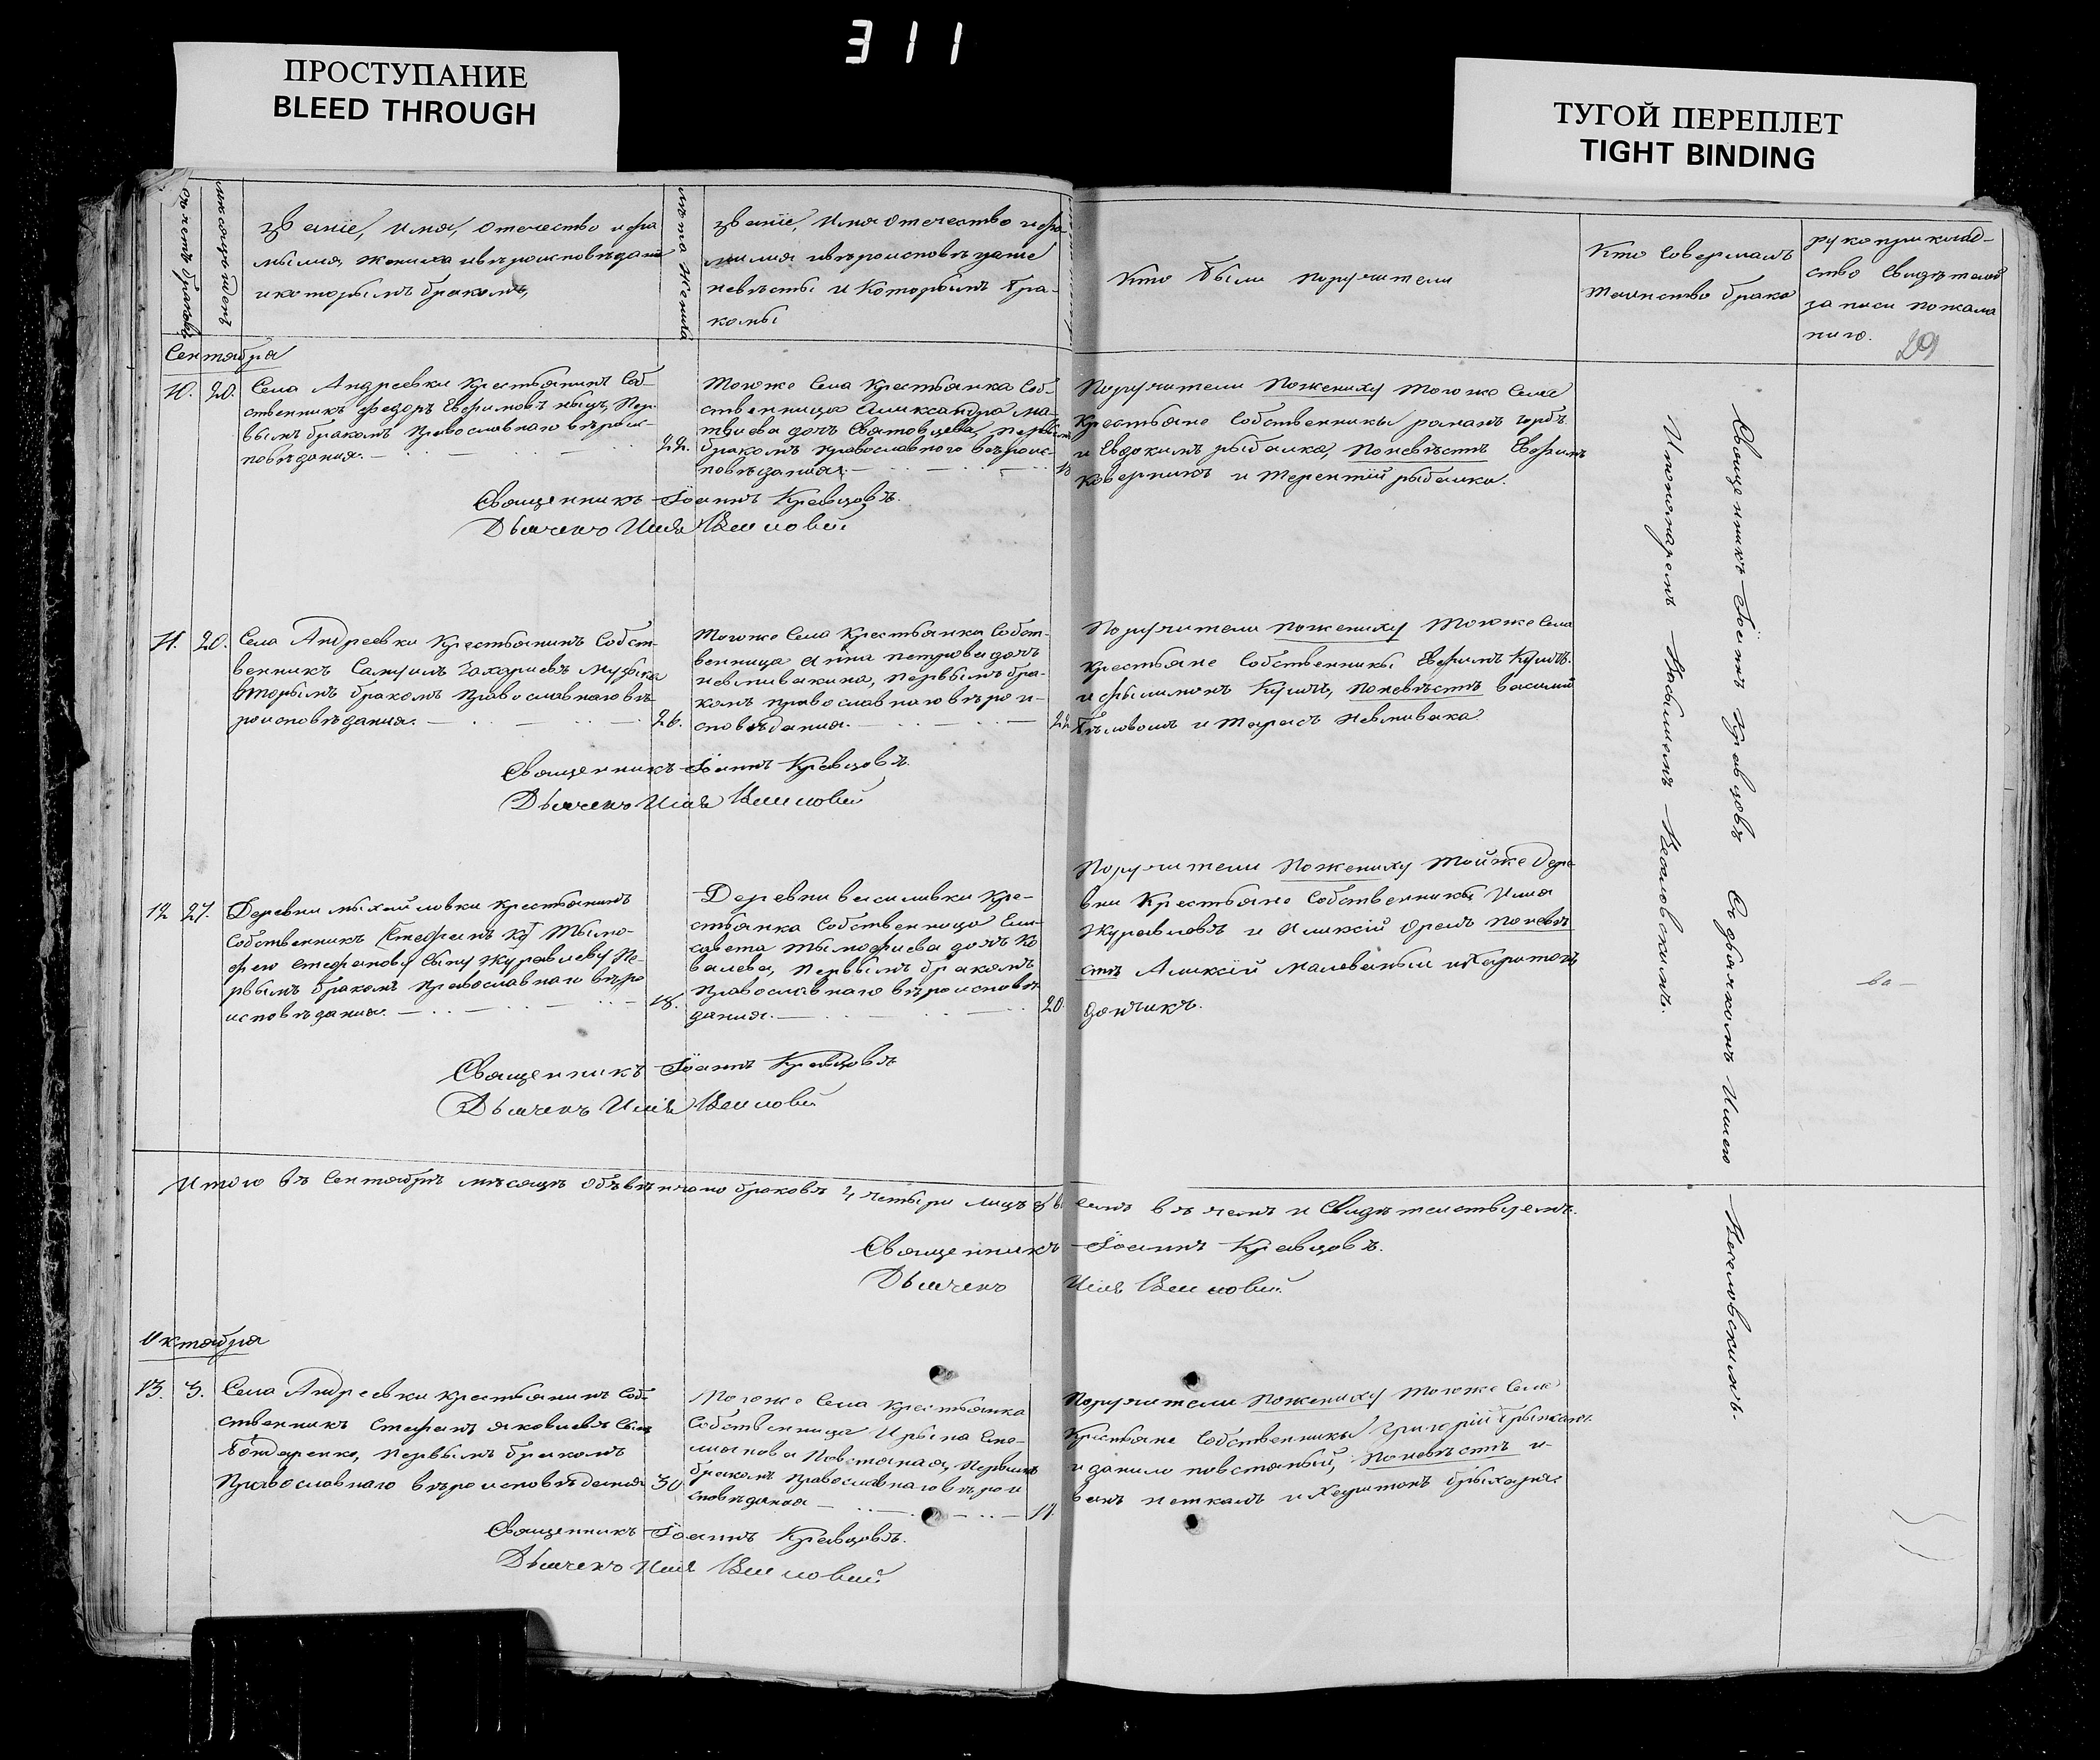 311
ПРОСТУПАНИЕ
BLEED THROUGH
ТУГОЙ ПЕРЕПЛЕТ
TIGHT BINDING
счетъ браковъ
мѣсяцъ и день
званіе, имя, отечество и фа
милия, жениха и вѣроисповѣдание
и которымъ бракомъ,
лѣта жениха
званіе, имя отечество и фа-
милия и вѣроисповѣдание
невѣсты и которымъ бра-
комъ
Кто были поручители
Кто совершалъ
таинство брака
рукоприклад-
ство свидѣтелей
записи по жела
нию.
29
Сентября
10. 20. Села Андреевки крестьянинъ соб-
ственникъ федоръ Евфимовъ пер-
вымъ бракомъ православнаго вѣроис-
повѣдания.
22.
Тогоже села крестьянка соб-
ственница Александра ма-
твиева дочь Святовцева, первымъ
бракомъ православного вѣроис-
повѣдания
Поручители по жениху тогоже села
крестьяне собственники романъ горбъ
и Евдокимъ рыбалка, по невѣстѣ Евфимъ
Коверникъ и терентій рыбалка.
Священникъ Іоаннъ Кравцовъ.
Дьячекъ Илія
11. 20. Села Андреевки крестьянинъ собст-
венникъ Самуилъ Захариевъ музыка
вторымъ бракомъ православнаго вѣ-
роисповѣдания.
26.
Тогоже села крестьянка собст-
венница Анна петрова дочь
невпивакина, первымъ бра-
комъ православнаго вѣрои-
сповѣдания.
22
Поручители по жениху тогоже села
крестьяне собственники Евфимъ Куличъ.
и филимонъ Куличъ, по невѣстѣ василий
бѣловолъ и тарасъ невпивака
Священникъ Іоаннъ Кравцовъ.
Дьячекъ Илія
12 27. Деревни михайловки крестьянинъ
собственникъ Стефанъ тимо-
фею стефанову сыну журавлеву пе-
рвымъ бракомъ православнаго вѣро
исповѣдания.
18.
Деревни василивки кре-
стьянка собственница Ели-
савета тимофиева дочь Ко
валева, первымъ бракомъ
православнаго вѣроисповѣ
дания.
20.
Поручители по жениху тойже дере
вни крестьяне собственники Илия
журавлевъ и Аликсій орелъ по невѣ
стѣ Аликсій малеваный и харитонъ
дончикъ.
Священникъ Іоаннъ Кравцовъ
Дьячекъ Илія
Священникъ Іоаннъ Кравцовъ Съ дьячкомъ Илиею
И пономаремъ
ва
Итого въ сентябрѣ мѣсяцѣ обвѣнчано браковъ 4 четыри лицъ 8 во
семъ въ чемъ и свидѣтельствуемъ.
Священникъ Іоаннъ Кравцовъ.
Дьячекъ Илія
Октября
13. 3. Села Андреевки крестьянинъ соб-
ственникъ Стефанъ яковлевъ сынъ
бондаренко, первымъ бракомъ
православнаго вѣроисповѣдания
30
Тогоже села крестьянка
собственница Ирина
Повстяная, первымъ
бракомъ православнаго вѣрои
сповѣдания
Поручители по жениху тогоже села
крестьяне собственники григорій
и данило повстяный, по невѣстѣ и-
ванъ и харитонъ
Священникъ Іоаннъ Кравцовъ.
Дьячекъ Илія